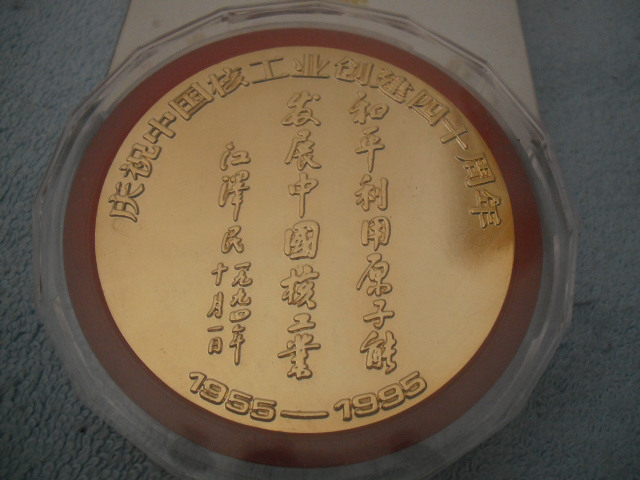 庆祝中国核工业创建四十周年
和平利用原子能
发展中國核工業
江泽民
一九九四年
十月一日
1955—1995